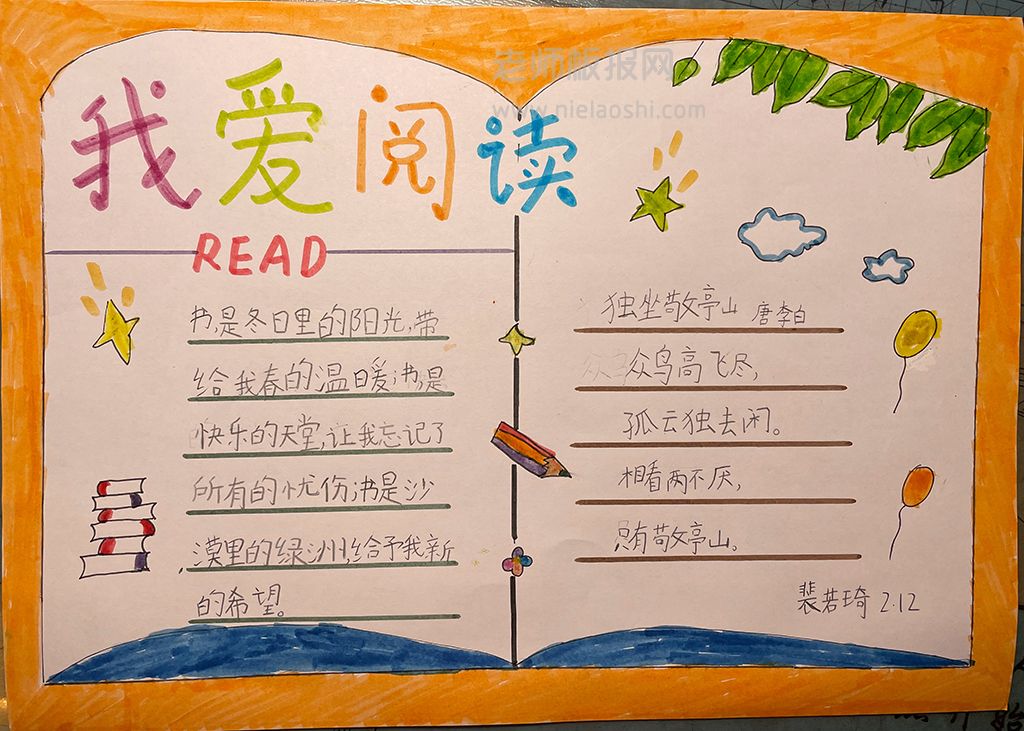 老师板报网
www.nielaoshi.com
我爱阅读
READ
书是冬日里的阳光,带
给我春的温暖;书是
快乐的天堂,让我忘记了
所有的忧伤;书是沙
漠里的绿洲,给予我新
的希望。
独坐敬亭山 唐李白
众鸟高飞尽,
孤云独去闲。
相看两不厌,
只有敬亭山。
裴若琦 2.12